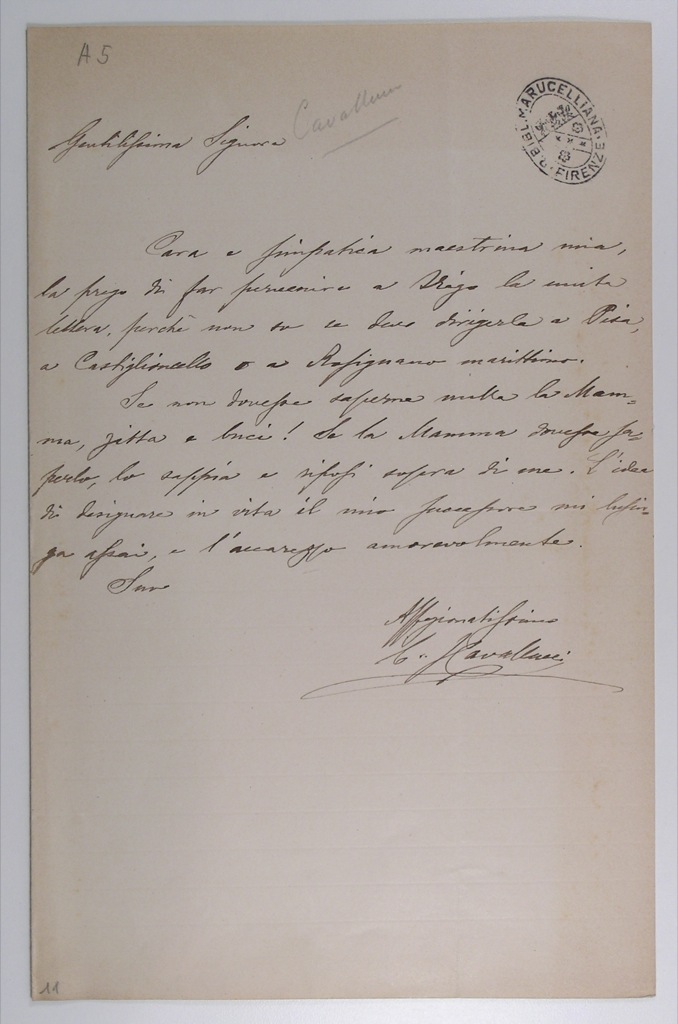 A 5
Cavallucci
R. BIBL. MARUCELLIANA · FIRENZE
Gentilissima Signora
Cara e simpatica maestrina mia,
la prego di far pervenire a Diego la unita
lettera, perchè non so se devo dirigerla a Pisa,
a Castiglioncello o a Rosignano marittimo.
Se non dovesse saperne nulla la Mam-
ma, zitta e buci! Se la Mamma dovesse sa-
perlo, lo sappia e riposi sopra di me. L'idea
di designare in vita il mio successore mi lusin-
ga assai, e l'accarezzo amorevolmente.
Suo
Affezionatissimo
C. J. Cavallucci
11